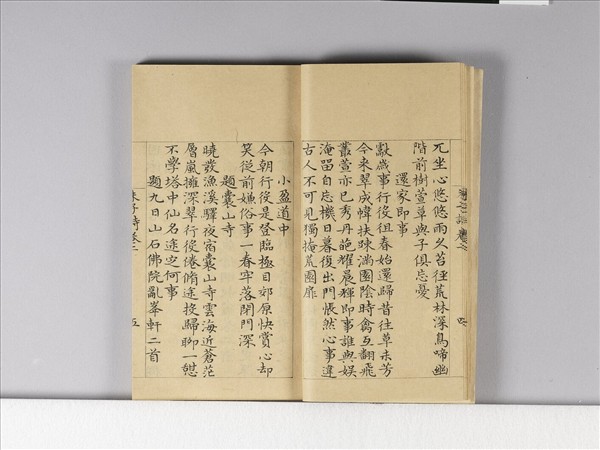 兀坐心悠悠雨久苔徑荒林深鳥啼幽
階前樹萱草與子俱忘憂
還家即事
獻歲事行役徂春始還歸昔往草未芳
今來翠成幃扶疎滿園陰時禽互翻飛
叢萱亦已秀丹葩耀晨輝即事誰與娱
淹留自忘機日暮復出門悵然心事違
古人不可見獨掩荒園扉
小盈道中
今朝行役是登臨極目郊原快賞心却
笑從前嫌俗事一春牢落閉門深
題囊山寺
曉發漁溪驛夜宿囊山寺雲海近蒼茫
層嵐擁深翠行役倦脩途投歸聊一憇
不學塔中仙名途定何事
題九日山石佛院亂峯軒二首
朱子詩卷之
五